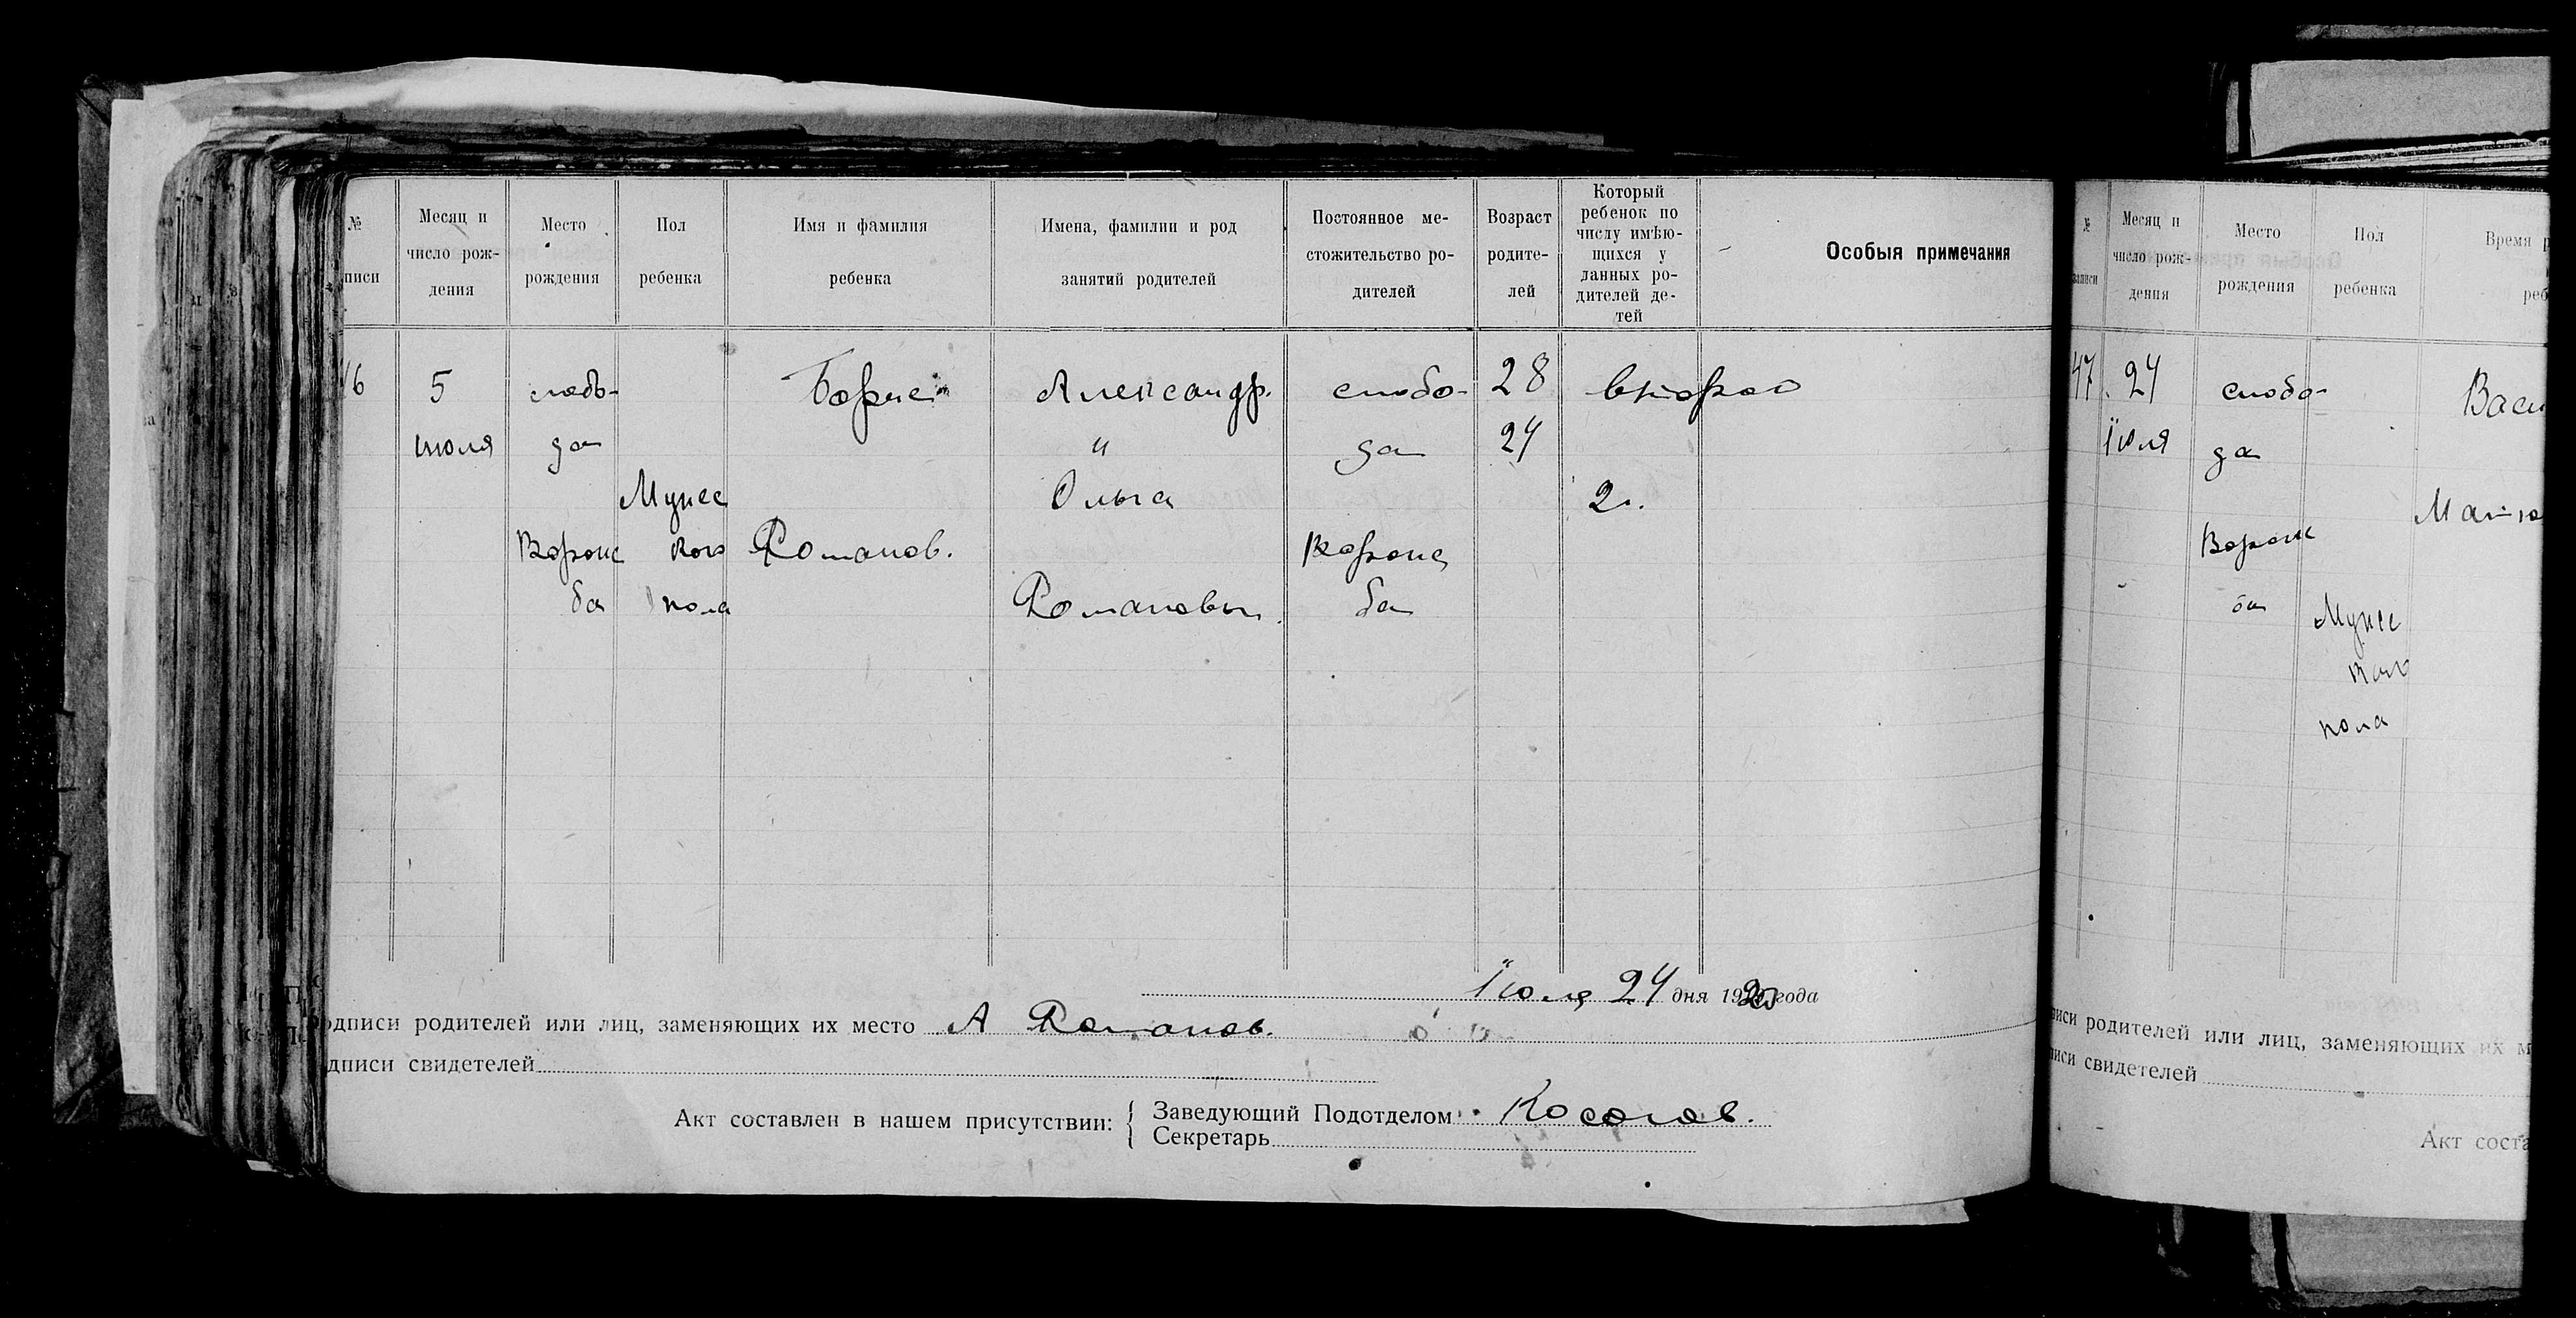 №
писи
Месяц и
число рож-
дения
Место
рождения
Пол
ребенка
Имя и фамилия
ребенка
Имена, фамилии и род
занятий родителей
Постоянное ме-
стожительство ро-
дителей
Возраст
родите-
лей
Который
ребенок по
числу имѣю-
щихся у
данных ро-
дителей де-
тей
Особыя примечания
46
5
июля
слобо-
да
Воронс
ба
Мужс
кого
пола
Борис
Романов.
Александр.
и
Ольга
Романовы.
слобо-
да
Воронс
ба
28
24
второй
2.
Июля 24 дня 1920 года
одписи родителей или лиц, заменяющих их место А Романов.
дписи свидетелей
Акт составлен в нашем присутствии:
Заведующий Подотделом Косогов.
Секретарь
№
записи
Месяц и
число рож-
дения
Место
рождения
Пол
ребенка
Время р
реб
47
24
Июля
слобо-
да
Воронс
ба
Мужс
кого
пола
Васи
писи родителей или лиц, заменяющих их м
писи свидетелей
Акт соста